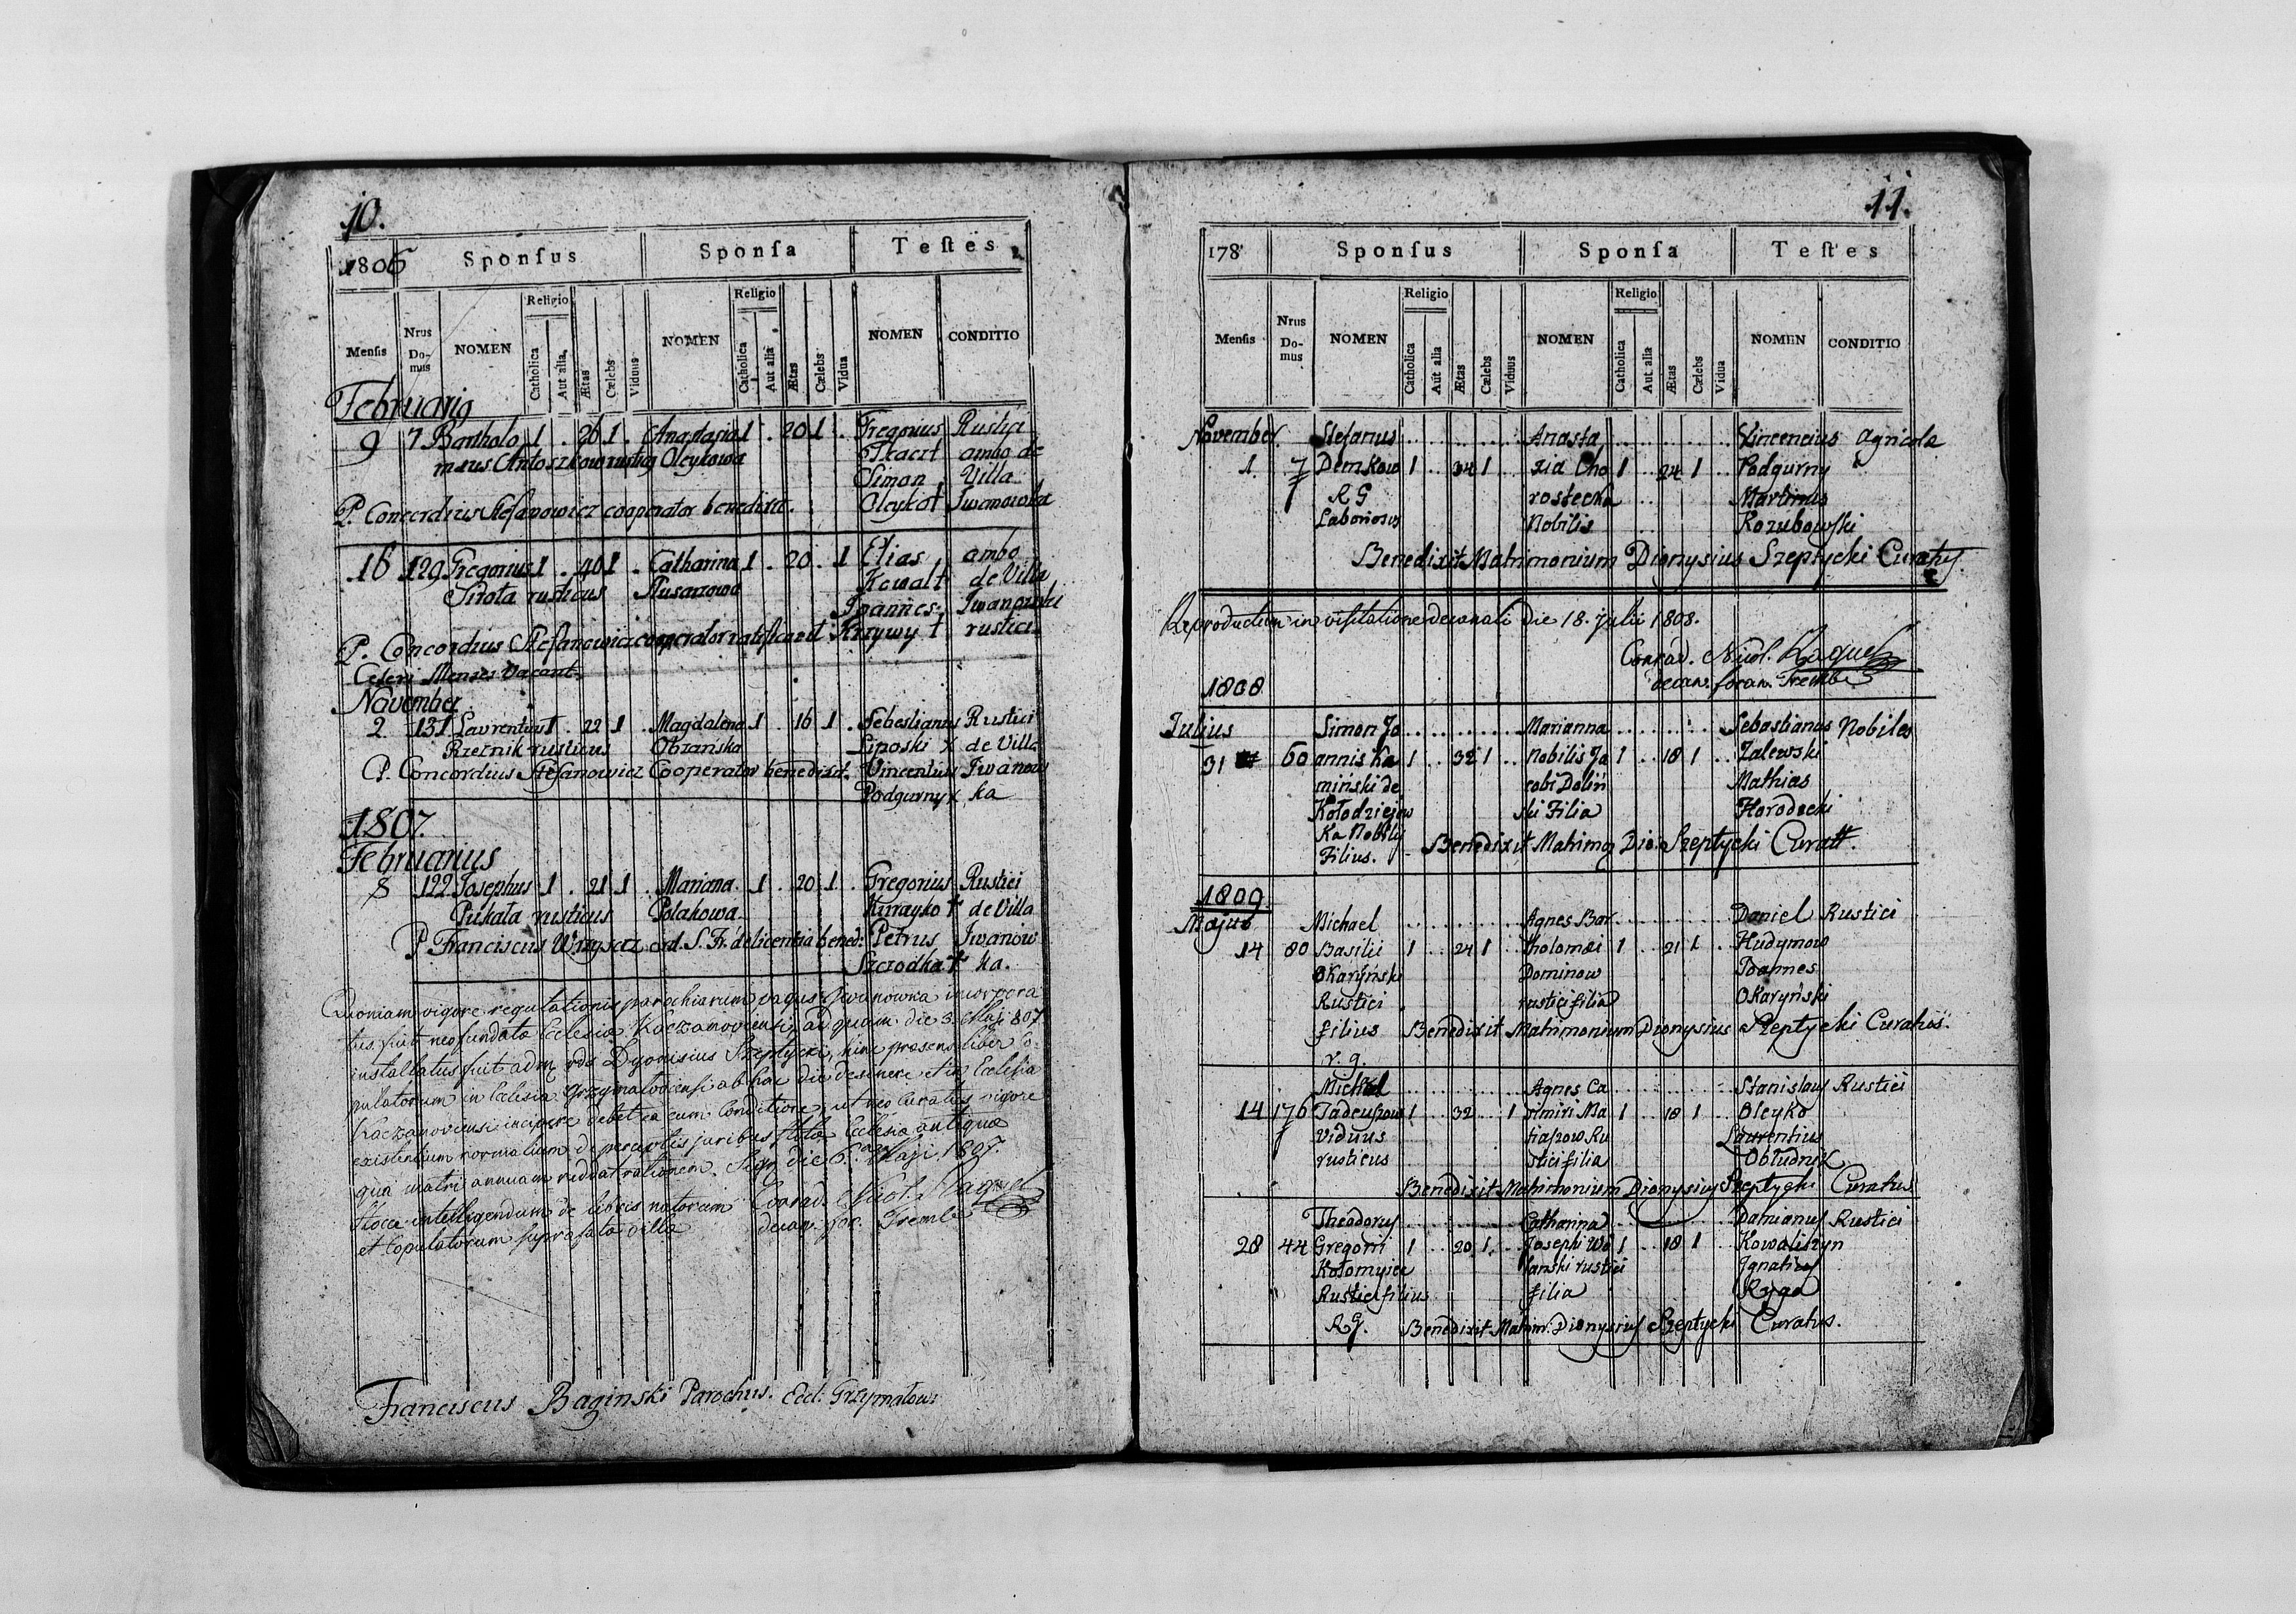 10.
1806 Sponsus Sponsa Testes
Religio Religio
Mensis Nrus Domus NOMEN Catholica Aut alia Ætas Cælebs Viduus NOMEN Catholica Aut alia Ætas Cælebs Vidua NOMEN CONDITIO
Februarig
9 7 Bartholo 1 . 26 1 . Anastasia 1 . 20 1 . Gregorius Rustici
meus Antoszkow rusticq Oleykowa Tkacz ambo de
Simon Villa
P. Concordius Stefanowicz cooperator benedixit. Oleyko † Iwanowka
16 129 Gregorius 1 . 40 1 . Catharina 1 . 20 . 1 Elias ambo
Sirota rusticus Kowal † de Villa
Joannes Iwanowki
P. Concordius Stefanowicz cooperator ratificavit Krzywy † rustici
Ceteri Menses vacant.
November
2 131 Laurentius 1 . 22 1 . Magdalena 1 . 16 1 . Sebestianus Rustici
Rzeznik rusticus Obzańska Liposki x de Villa
P. Concordius Stefanowicz Cooperator benedixit. Vincentius Iwanow
Podgurny x ka
1807.
Februarius
8 122 Josephus 1 . 21 1 . Mariana 1 . 20 1 . Gregorius Rustici
Pukała rusticus Polakowa † de Villa
P. Franciscus ord. S. Fr. de licentia bened: Petrus Iwanow
Szczodka † ka.
Quoniam vigore regulationis parochiarum pagus Iwanowka incorpora
tus fuit neofundata Eclesiæ Kaczanoviensi, ad quam die 3. Maji 807
installatus fuit adm rds Dyonisius Szeptycki, hinc præsens liber Co-
pulatorum in Eclesia Grzymaloviensi ab hac die desinere et in Eclesia
Kaczanoviensi incipere debet ea cum Conditione, ut neo Curatus vigore
existentium normalium de perceptis juribus stolæ Eclesiæ antiquæ
qua matri annuam reddat rationem. Sign die 6. Maji 1807.
Hocce intelligendum de libris natorum Conrad. Nicol. Raquel
et Copulatorum suprafata villa decan. for. Tremb
Franciscus Baginski Parochus. Eccl. Grzymałow:
11.
178 Sponsus Sponsa Testes
Religio Religio
Mensis Nrus Domus NOMEN Catholica Aut alia Ætas Cælebs Viduus NOMEN Catholica Aut alia Ætas Cælebs Vidua NOMEN CONDITIO
November Stefanus Anasta Vincencius Agricola
1 7 Demkow 1 . . 34 1 . . zia Cho 1 . . 24 1 . . Podgurny
R G rostecka Martinus
Laboriosus Nobilis Kozubowski
Benedixit Matrimonium Dionysius Szeptycki Curatus
Reproductum in visitatione decanali die 18. julii 1808.
Conrad. Nicol. Raquel
decan. foran. Tremb
1808
Julius Simon Jo Marianna Sebastianus Nobiles
31 60 annis Ka 1 . . 32 1 . . Nobilis Ja 1 . . 18 1 . . Zalewski
miński de cobi Doliń Mathias
Kołodziejow ski Filia Horodecki
Ka Nobilis
Filius. Benedixit Matrimo Dio. Szeptycki Curatt.
1809
Majus Michael Agnes Bar Daniel Rustici
14 80 Basilii 1 . . 24 1 . . tholomæi 1 . . 21 1 . . Hudymow
Okaryński Dominow Joannes
Rustici rustici filia Okaryński
filius Benedixit Matrimonium Dionysius Szeptycki Curatus.
r. g.
Michael Agnes Ca Stanislaus Rustici
14 176 Tadeuszow 1 . . 32 . . 1 zimiri Ma 1 . . 18 1 . . Oleyko
viduus tiaszow Ru Laurentius
rusticus stici filia Obłudnik
Benedixit Matrimonium Dionysius Szeptycki Curatus
Theodorus Catharina Damianus Rustici
28 44 Gregorii 1 . . 20 1 . . Josephi Wo 1 . . 18 1 . . Kowaliszyn
Kołomyiec lanski rustici Ignatius
Rustici filius filia Ryga
R G. Benedixit Matrim. Dionysius Szeptycki Curatus.